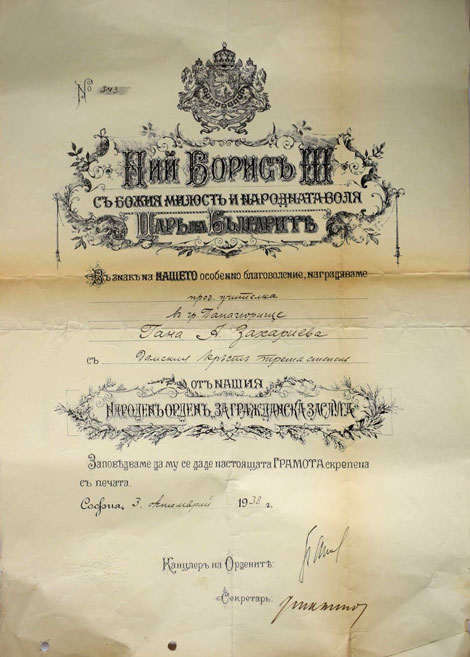 № 543
Ний Борисъ III
съ Божия милость и народната воля
Царь на Българитѣ
Въ знакъ на НАШЕТО особенно благоволение, награждаваме
прог. учителка
въ гр. Панагюрище
Гана А. Захариева
съ Дамския кръстъ трета степень
отъ НАШИЯ
Народенъ орденъ за гражданска заслуга
Заповѣдваме да му се даде настоящата ГРАМОТА скрепена
съ печата.
София, 3. октомврий 1938 г.
Канцлеръ на Орденитѣ:
Секретарь: